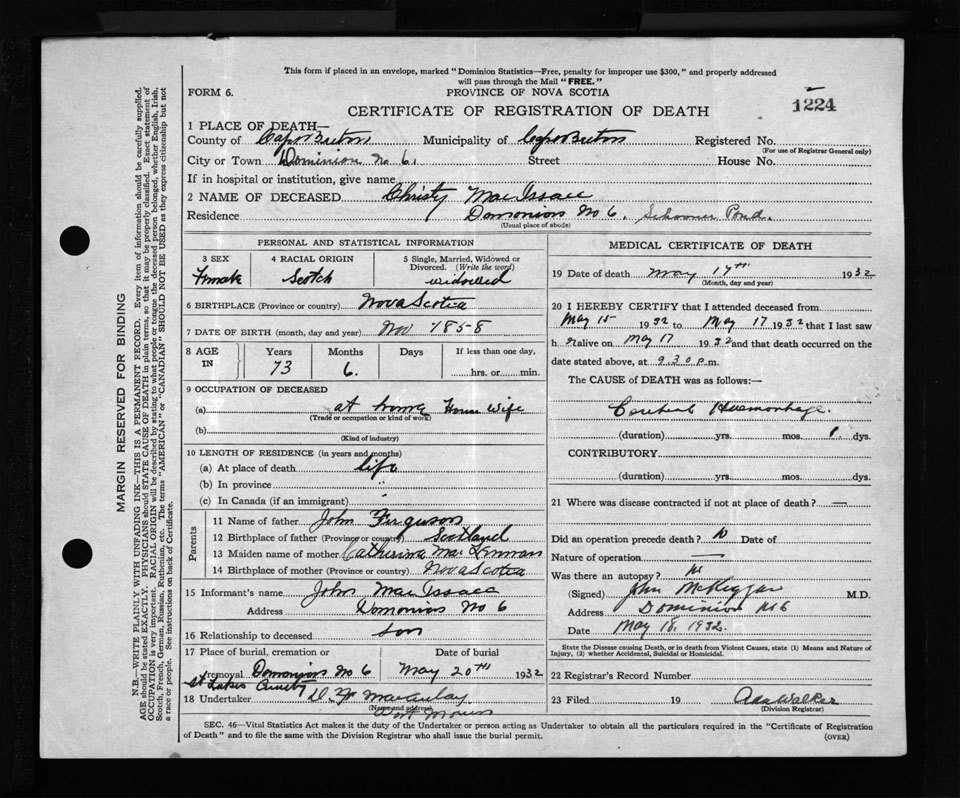 This form if placed in an envelope, marked "Dominion Statistics—Free, penalty for improper use $300," and properly addressed
will pass through the Mail "FREE."
FORM 6.
PROVINCE OF NOVA SCOTIA
CERTIFICATE OF REGISTRATION OF DEATH
1224
1 PLACE OF DEATH—
County of Cape Breton Municipality of Cape Breton Registered No.
(For use of Registrar General only)
City or Town Dominion No 6. Street House No.
If in hospital or institution, give name
2 NAME OF DECEASED Christy Mac Issacc
Residence Domonion No 6. Schooner Pond.
(Usual place of abode)
PERSONAL AND STATISTICAL INFORMATION
3 SEX 4 RACIAL ORIGIN 5 Single, Married, Widowed or
Divorced. (Write the word)
Female Scotch widowed
6 BIRTHPLACE (Province or country) Nova Scotia
7 DATE OF BIRTH (month, day and year) Nov 1858
8 AGE IN Years Months Days If less than one day,
73 6. hrs. or min.
9 OCCUPATION OF DECEASED
(a) at home House Wife
(Trade or occupation or kind of work)
(b)
(Kind of industry)
10 LENGTH OF RESIDENCE (in years and months)
(a) At place of death life
(b) In province "
(c) In Canada (if an immigrant)
Parents
11 Name of father John Ferguson
12 Birthplace of father (Province or country) Scotland
13 Maiden name of mother Catherina Mac Lennan
14 Birthplace of mother (Province or country) Nova Scotia
15 Informant's name John Mac Issacc
Address Domonion No 6
16 Relationship to deceased son
17 Place of burial, cremation or Date of burial
removal Domonion No 6 May 20TH 1932
St Lukes
18 Undertaker
(Name and address)
MEDICAL CERTIFICATE OF DEATH
19 Date of death May 17th 1932
(Month, day and year)
20 I HEREBY CERTIFY that I attended deceased from
May 15 1932 to May 17 1932 that I last saw
h er alive on May 17 1932 and that death occurred on the
date stated above, at 9.30 p.m.
The CAUSE of DEATH was as follows:—
Cerebral Haemorhage.
(duration) yrs. mos. dys.
CONTRIBUTORY
(duration) yrs. mos. dys.
21 Where was disease contracted if not at place of death? —
Did an operation precede death? No Date of
Nature of operation —
Was there an autopsy? No
(Signed) John McKeggan M.D.
Address Dominion No 6
Date May 18, 1932.
State the Disease causing Death, or in death from Violent Causes, state (1) Means and Nature of
Injury, (2) whether Accidental, Suicidal or Homicidal.
22 Registrar's Record Number
23 Filed 19 Ada Walker
(Division Registrar)
SEC. 46—Vital Statistics Act makes it the duty of the Undertaker or person acting as Undertaker to obtain all the particulars required in the "Certificate of Registration
of Death" and to file the same with the Division Registrar who shall issue the burial permit.
(OVER)
MARGIN RESERVED FOR BINDING
N.B.—WRITE PLAINLY WITH UNFADING INK—THIS IS A PERMANENT RECORD. Every item of information should be carefully supplied.
AGE should be stated EXACTLY. PHYSICIANS should STATE CAUSE OF DEATH in plain terms, so that it may be properly classified. Exact statement of
OCCUPATION is very important. RACIAL ORIGIN will be described by stating to what people or tongue the deceased person belonged, whether English, Irish,
Scotch, French, German, Russian, Ruthenian, etc. The terms "AMERICAN" or "CANADIAN" SHOULD NOT BE USED as they express citizenship but not
a race or people. See instructions on back of Certificate.